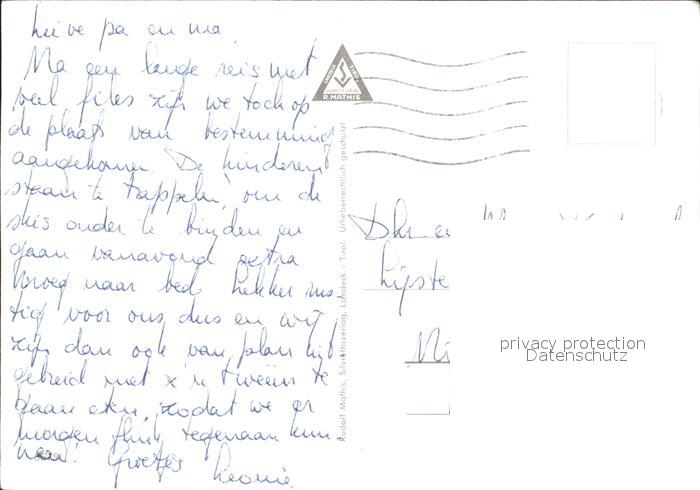 Lieve pa en ma
Na een lange reis met
veel files zijn we toch op
de plaats van bestemming
aangekomen. De kinderen
staan te trappelen om de
skis onder te binden en
gaan vanavond extra
vroeg naar bed. Lekker rus-
tig voor ons dus en wij
zijn dan ook van plan uit
gebreid met z'n tweeën te
gaan eten, zodat we er
morgen flink tegenaan kun-
nen. Groetjes
Leonie
R. MATHIS
Rudolf Mathis, Silvrettaverlag, Landeck - Tirol. Urheberrechtlich geschützt
Dhr en
Lijste
Ni
privacy protection
Datenschutz